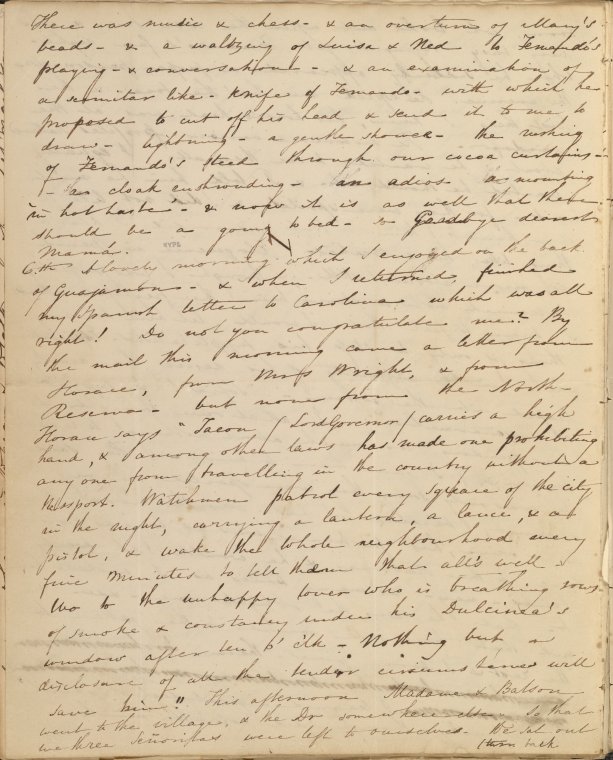 There was music & chess - & an overturn of Mary's
beads - & a waltzing of Luisa & Ned to Fernando's
playing - & conversation - & an examination of
a scimitar like - knife of Fernando - with which he
proposed to cut off his head & send it to me to
draw - lightning - a gentle shower - the rushing
of Fernando's steed through our cocoa curtains -
cloak enshrouding - an adios - as mounting
"in hot haste" - & now it is as well that there
should be a going to bed - so Goodbye dearest
Mamá.
NYPL
6th A lovely morning which I enjoyed on the back
of Guajamon - & when I returned, finished
my Spanish letter to Carolina which was all
right! Do not you congratulate me? By
the mail this morning came a letter from
Horace, from Mrs Wright, & from
Reserva - but none from the North -
Horace says "Tacon (Lord Governor) carries a high
hand, & among other laws has made one prohibiting
any one from travelling in the country without a
Passport. Watchmen patrol every square of the city
in the night, carrying a lantern, a lance, & a
pistol, & wake the whole neighbourhood every
five minutes to tell them that all's well -
Wo to the unhappy lover who is breathing vows
of smoke & constancy under his Dulcinea's
window after ten o'clk - Nothing but a
disclosure of all the tender circumstances will
save him." This afternoon Madame & Batson
went to the village, & the Dr somewhere else - So that
we three Señoritas were left to ourselves. We sat out
turn back